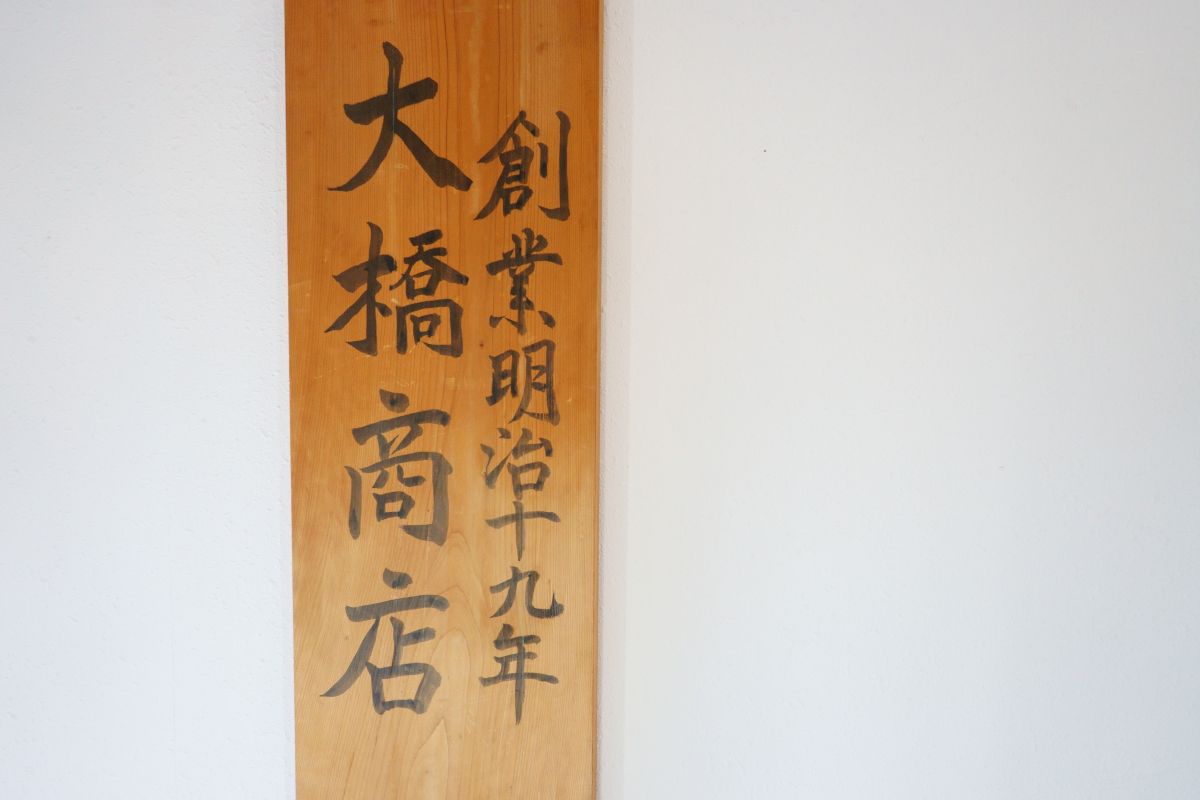 創業明治十九年
大橋商店